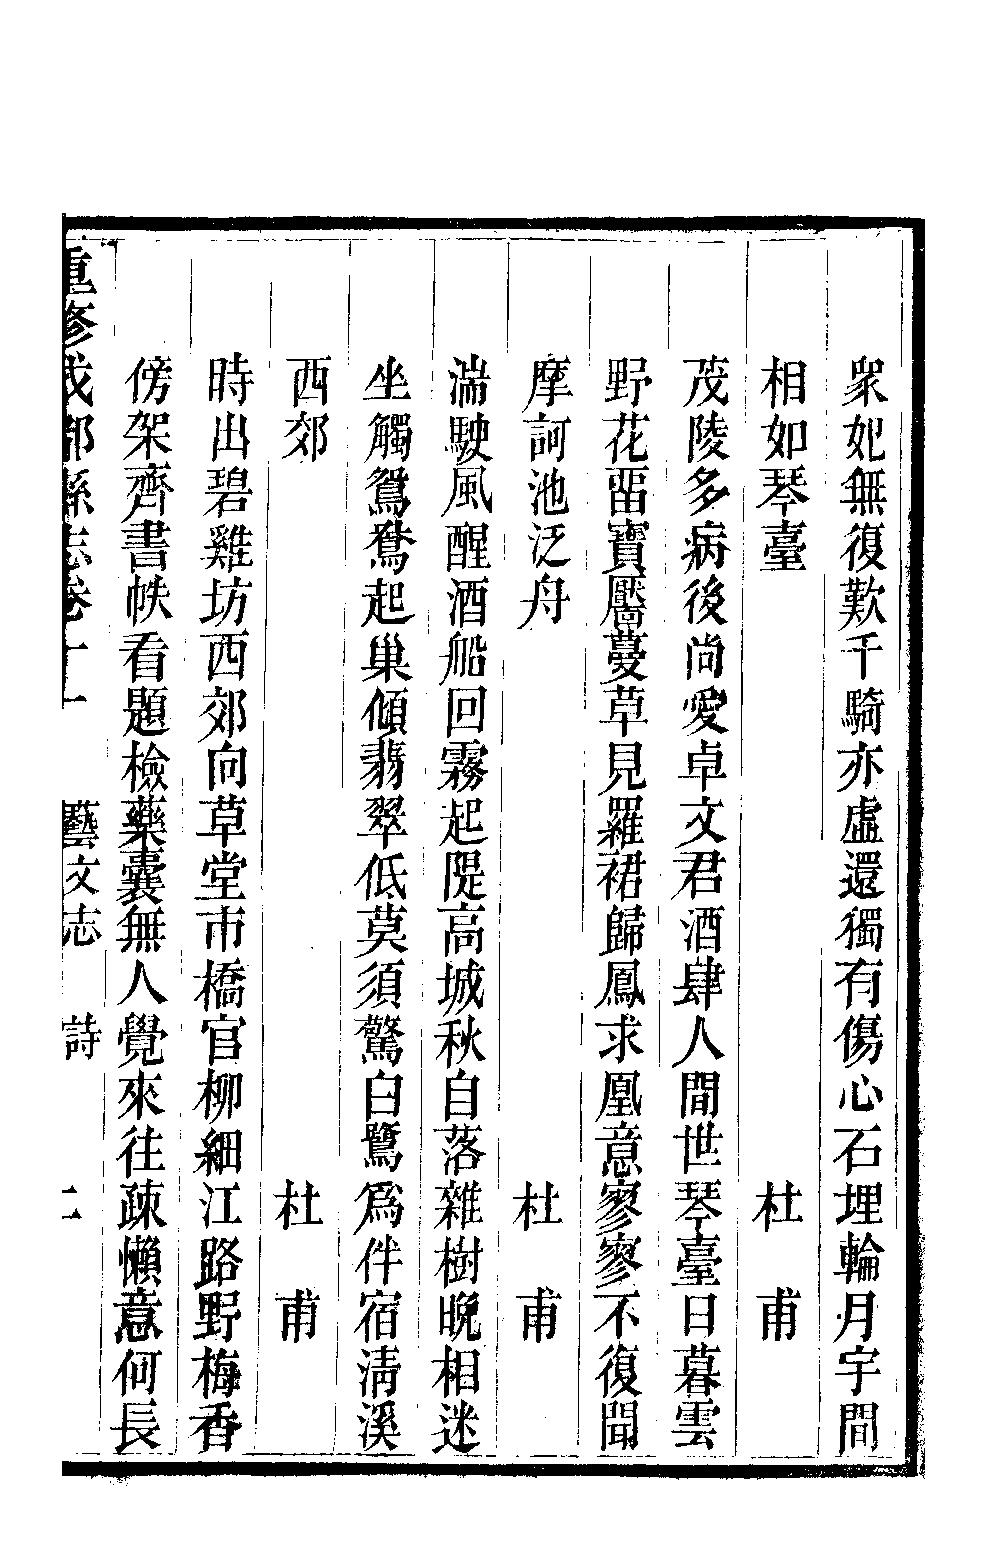 眾妃無復歎千騎亦虛還獨有傷心石埋輪月宇間
相如琴臺 杜甫
茂陵多病後尚愛卓文君酒肆人間世琴臺日暮雲
野花留寶靨蔓草見羅裙歸鳳求凰意寥寥不復聞
摩訶池泛舟 杜甫
湍駛風醒酒船回霧起隄高城秋自落雜樹晚相迷
坐觸鴛鴦起巢傾翡翠低莫須驚白鷺爲伴宿淸溪
西郊 杜甫
時出碧雞坊西郊向草堂市橋官柳細江路野梅香
傍架齊書帙看題檢藥囊無人覺來往疎懶意何長
重修成都縣志卷十一 藝文志 詩 二